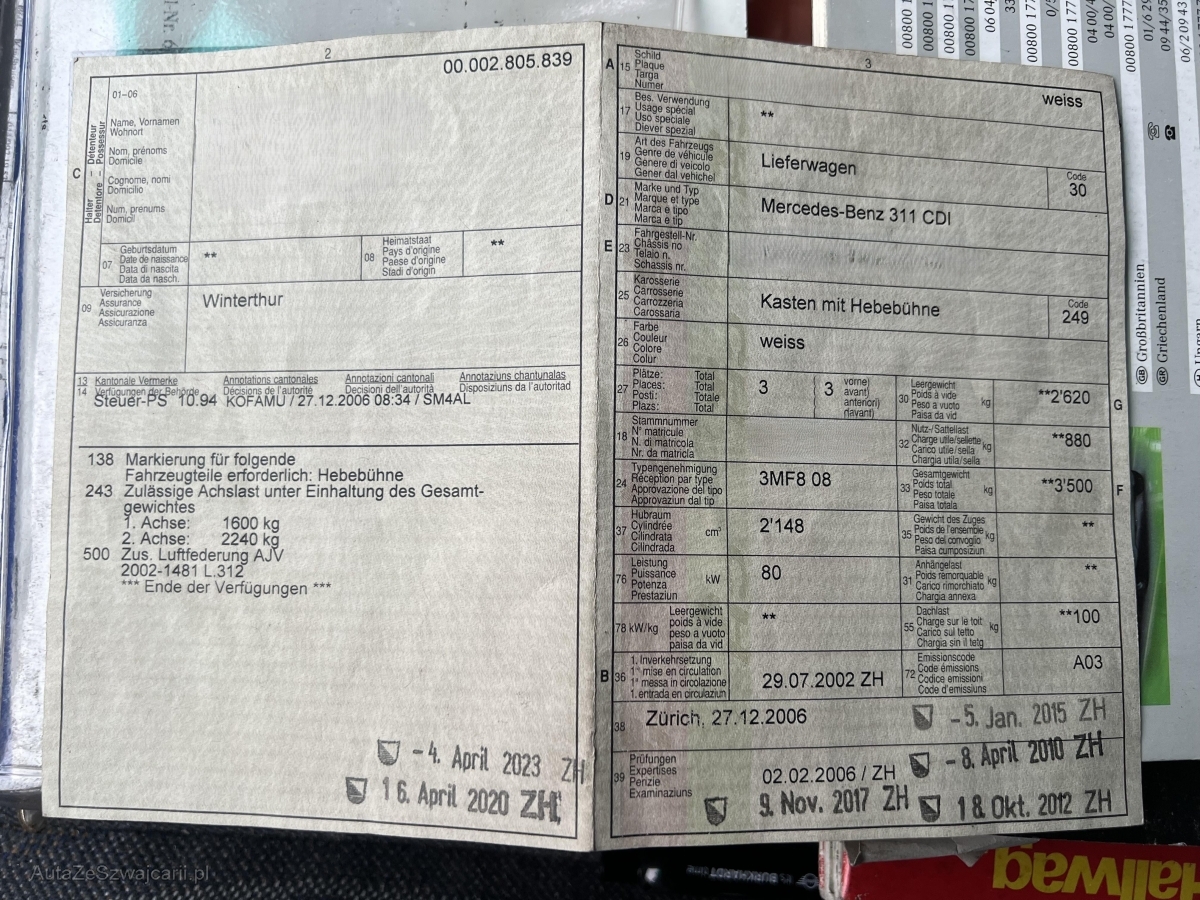 2
00.002.805.839
01–06
Halter – Détenteur
Detentore – Possessur
C
Name, Vornamen
Wohnort
Nom, prénoms
Domicile
Cognome, nomi
Domicilio
Num, prenums
Domicil
07
Geburtsdatum
Date de naissance
Data di nascita
Data da nasch.
**
08
Heimatstaat
Pays d'origine
Paese d'origine
Stadi d'origin
**
09
Versicherung
Assurance
Assicurazione
Assicuranza
Winterthur
13 Kantonale Vermerke Annotations cantonales Annotazioni cantonali Annotaziuns chantunalas
14 Verfügungen der Behörde Décisions de l'autorité Decisioni dell'autorità Disposiziuns da l'autoritad
Steuer-PS 10.94 KOFAMU / 27.12.2006 08:34 / SM4AL
138 Markierung für folgende
Fahrzeugteile erforderlich: Hebebühne
243 Zulässige Achslast unter Einhaltung des Gesamt-
gewichtes
1. Achse: 1600 kg
2. Achse: 2240 kg
500 Zus. Luftfederung AJV
2002-1481 L.312
*** Ende der Verfügungen ***
-4. April 2023 ZH
16. April 2020 ZH
3
A 15
Schild
Plaque
Targa
Numer
weiss
17
Bes. Verwendung
Usage spécial
Uso speciale
Diever spezial
**
19
Art des Fahrzeugs
Genre de véhicule
Genere di veicolo
Gener dal vehichel
Lieferwagen
Code
30
D 21
Marke und Typ
Marque et type
Marca e tipo
Marca e tip
Mercedes-Benz 311 CDI
E 23
Fahrgestell-Nr.
Châssis no
Telaio n.
Schassis nr.
25
Karosserie
Carrosserie
Carrozzeria
Carossaria
Kasten mit Hebebühne
Code
249
26
Farbe
Couleur
Colore
Colur
weiss
27
Plätze: Total
Places: Total
Posti: Totale
Plazs: Total
3
3
vorne)
avant)
anteriori)
(davant)
30
Leergewicht
Poids à vide
Peso a vuoto
Paisa da vid
kg
**2'620
G
18
Stammnummer
N° matricule
N. di matricola
Nr. da matricla
32
Nutz-/Sattellast
Charge utile/sellette
Carico utile/sella
Chargia utila/sella
kg
**880
24
Typengenehmigung
Réception par type
Approvazione del tipo
Approvaziun dal tip
3MF8 08
33
Gesamtgewicht
Poids total
Peso totale
Paisa totala
kg
**3'500
F
37
Hubraum
Cylindrée
Cilindrata
Cilindrada
cm³
2'148
35
Gewicht des Zuges
Poids de l'ensemble
Peso del convoglio
Paisa cumposiziun
kg
**
76
Leistung
Puissance
Potenza
Prestaziun
kW
80
31
Anhängelast
Poids remorquable
Carico rimorchiato
Chargia annexa
kg
**
78 kW/kg
Leergewicht
poids à vide
peso a vuoto
paisa da vid
**
55
Dachlast
Charge sur le toit
Carico sul tetto
Chargia sin il tetg
kg
**100
B 36
1. Inverkehrsetzung
1re mise en circulation
1a messa in circolazione
1. entrada en circulaziun
29.07.2002 ZH
72
Emissionscode
Code émissions
Codice emissioni
Code d'emissiuns
A03
38
Zürich, 27.12.2006
-5. Jan. 2015 ZH
39
Prüfungen
Expertises
Perizie
Examinaziuns
02.02.2006 / ZH
-8. April 2010 ZH
9. Nov. 2017 ZH
18. Okt. 2012 ZH
Großbritannien
GB
Griechenland
GR
BURKHARDT
Hallwag
AutaZeSzwajcarii.pl